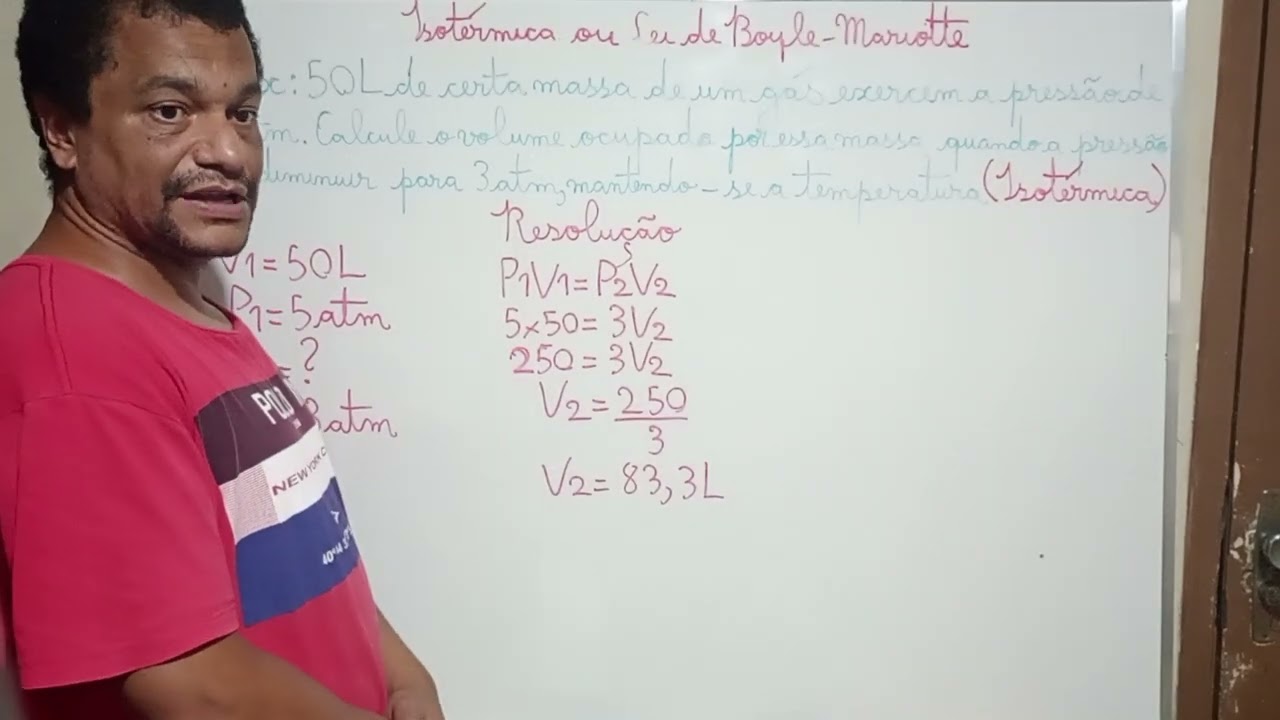 Isotérmica ou Lei de Boyle-Mariotte
: 50L de certa massa de um gás exercem a pressão de
. Calcule o volume ocupado por essa massa quando a pressão
diminuir para 3 atm, mantendo-se a temperatura (Isotérmica)
Resolução
V1 = 50L
P1 = 5 atm
= ?
3 atm
P1V1 = P2V2
5x50 = 3V2
250 = 3V2
V2 = 250
3
V2 = 83,3L
POLO
NEW YORK